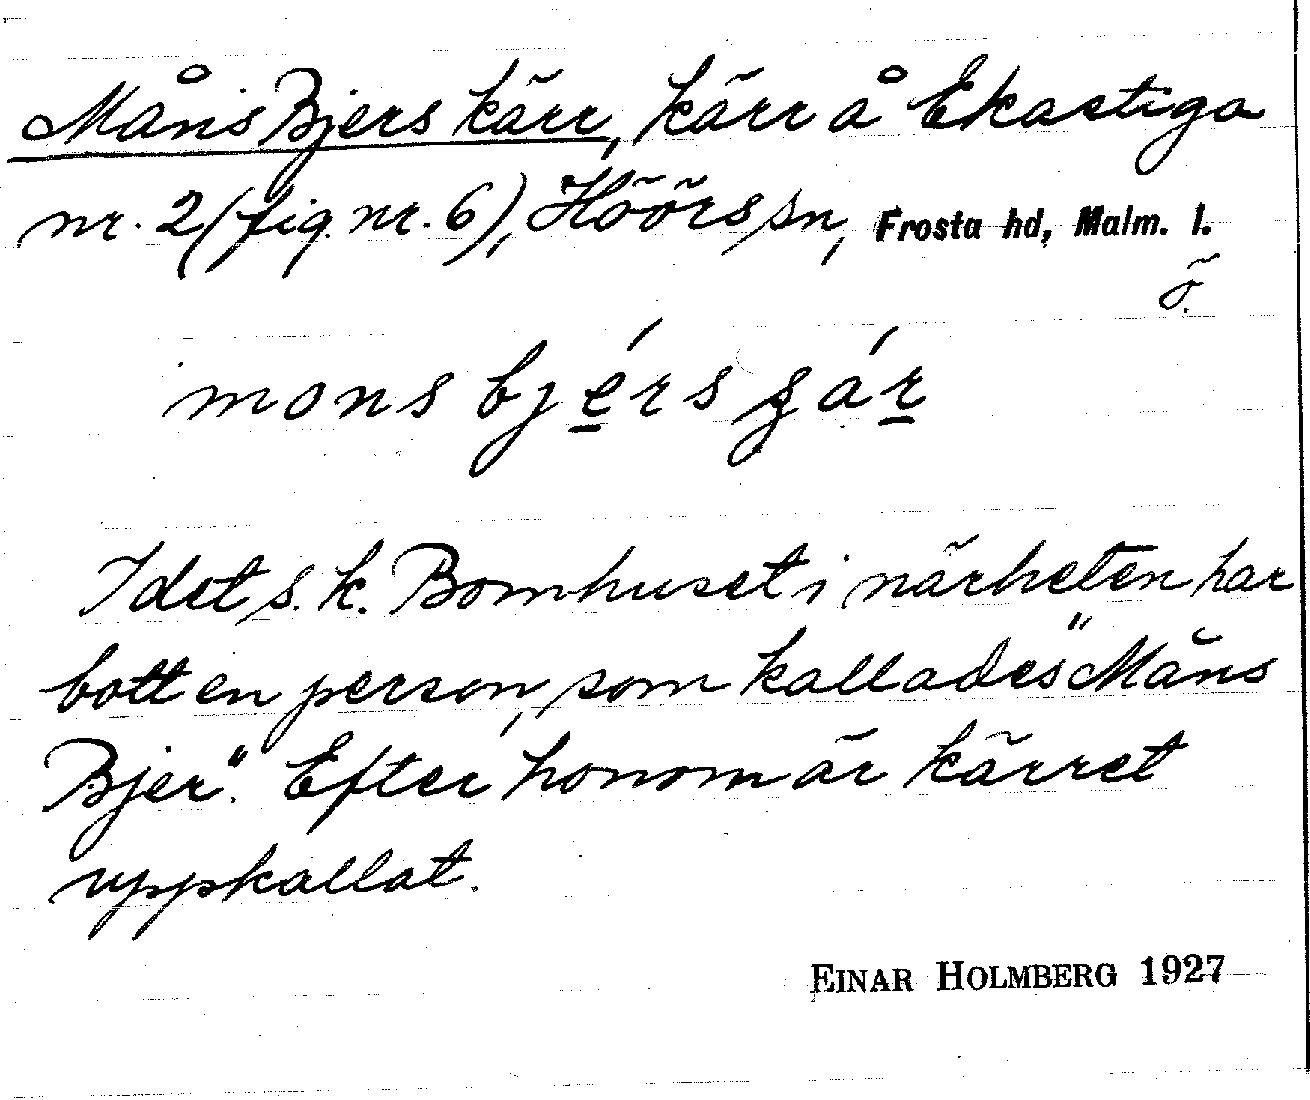 Måns Bjers kärr, kärr å Ekastiga
nr. 2 (fig. nr. 6), Höörs sn, Frosta hd, Malm. l.
ö.
mons bjérs gár
I det s. k. Bomhuset i närheten har
bott en person, som kallades "Måns
Bjer". Efter honom är kärret
uppkallat.
EINAR HOLMBERG 1927